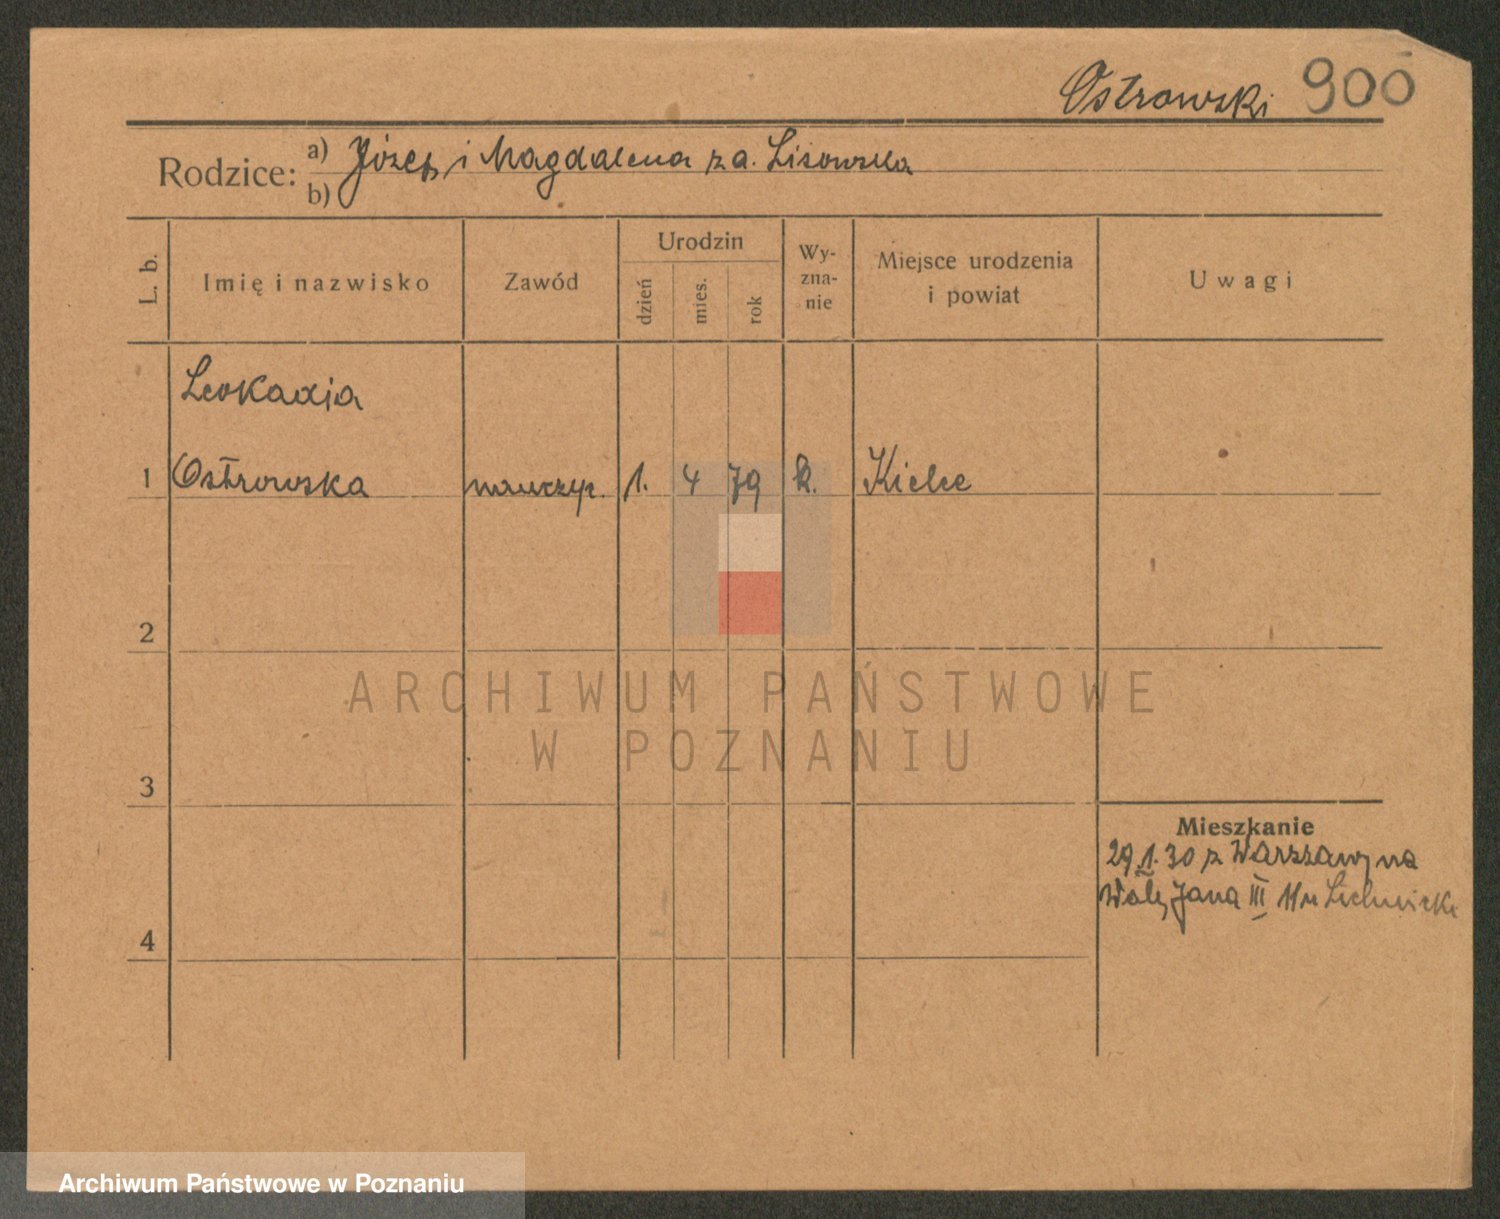 Ostrowski 900
Rodzice:
a) Józef i Magdalena z d. Lisowska
b)
L. b.
Imię i nazwisko
Zawód
Urodzin
dzień
mies.
rok
Wy-
zna-
nie
Miejsce urodzenia
i powiat
Uwagi
Leokadja
1 Ostrowska nauczyc. 1. 4 79 k. Kielce
2
ARCHIWUM PAŃSTWOWE
W POZNANIU
3
Mieszkanie
29.1.30 z Warszawy na
Wały Jana III 11 u
4
Archiwum Państwowe w Poznaniu